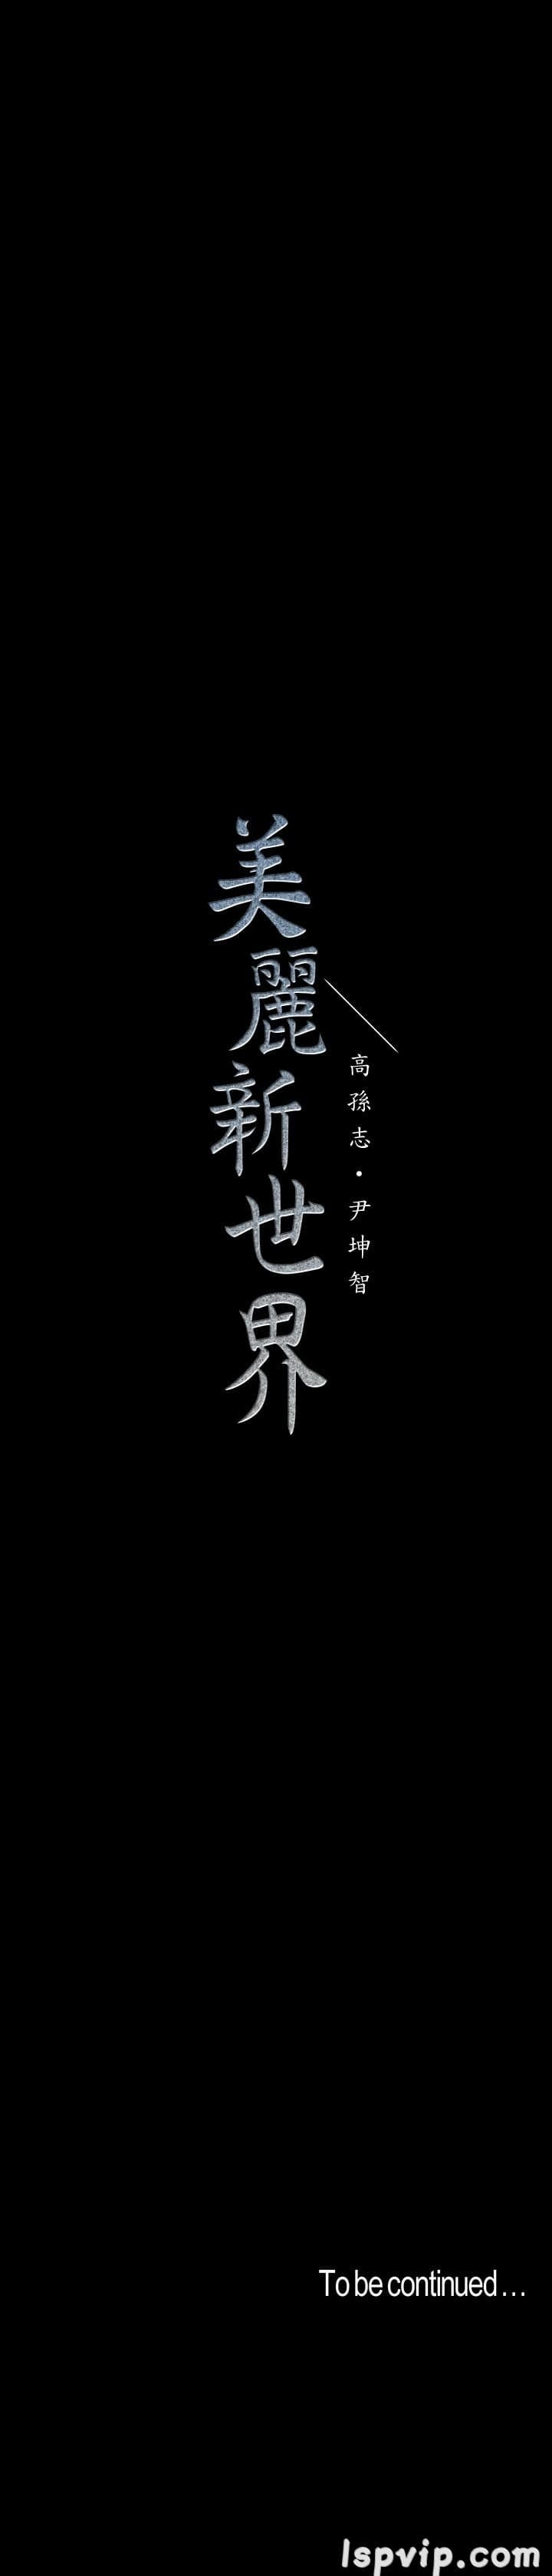 美麗新世界
高孫志・尹坤智
To be continued...
lspvip.com